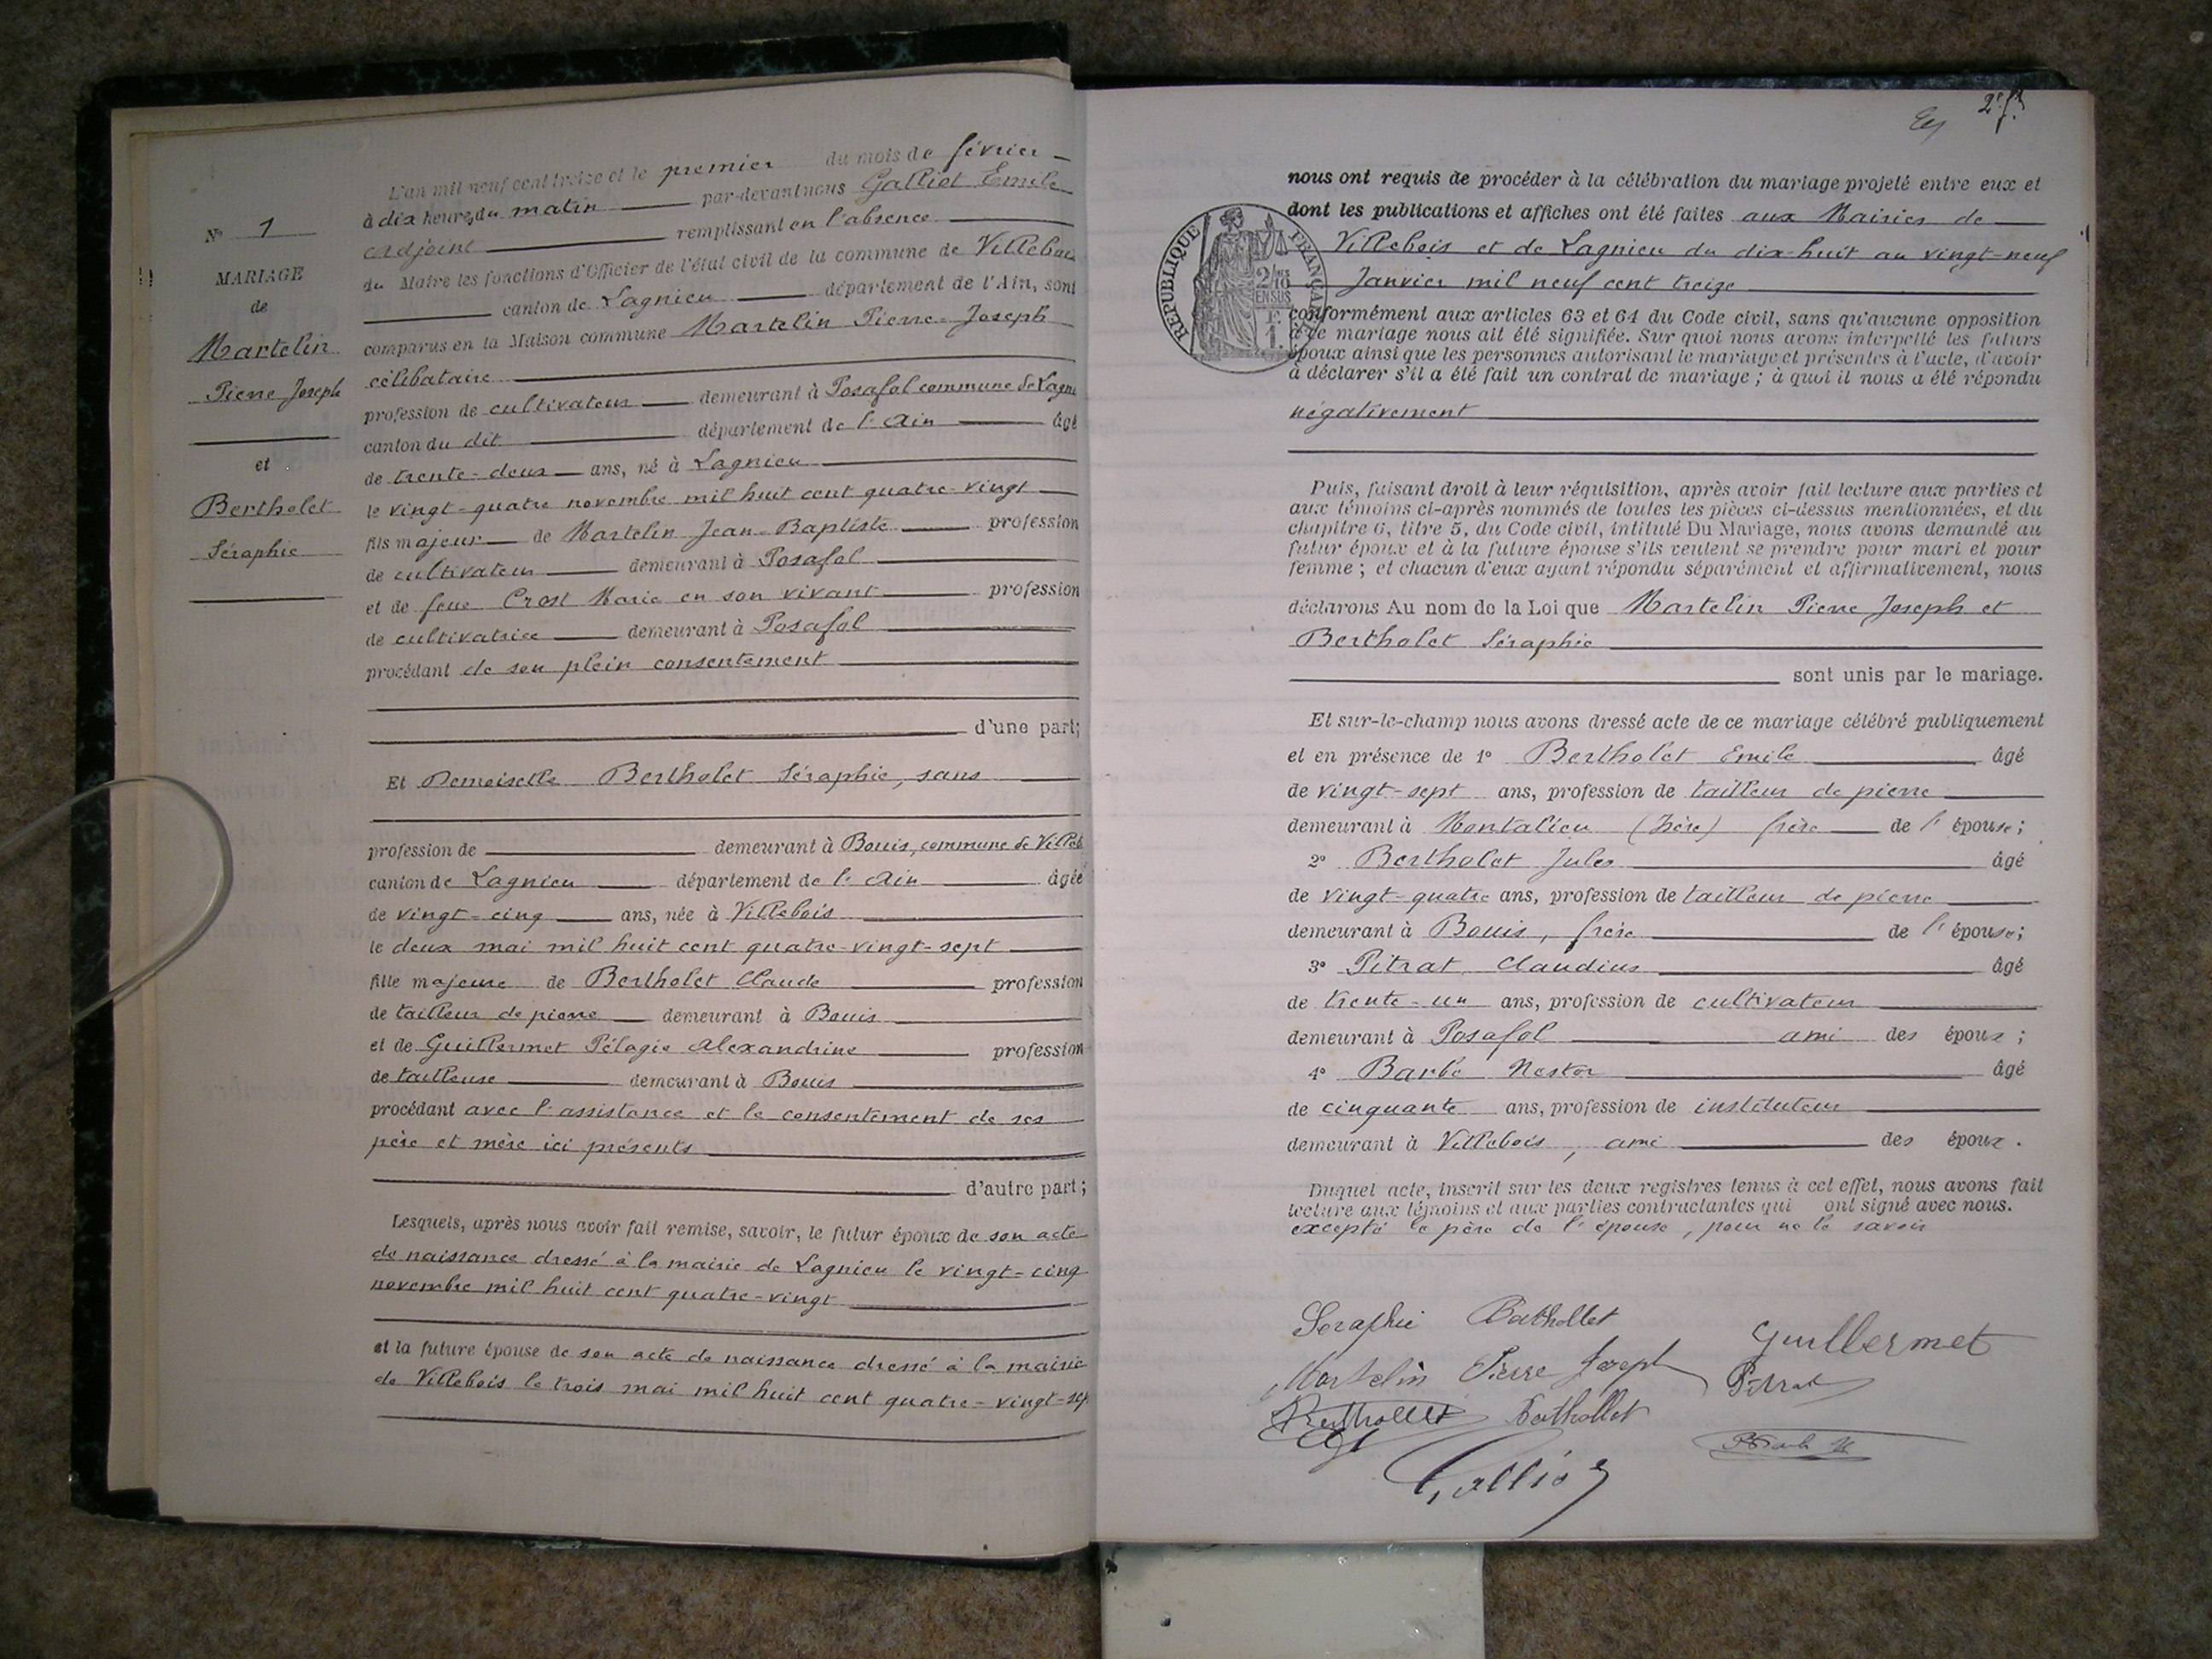 N° 1
MARIAGE
de
Martelin
Pierre Joseph
et
Bertholet
Séraphie
L'an mil neuf cent treize et le premier du mois de février
à dix heures du matin par-devant nous Galliot Emile
adjoint remplissant en l'absence
du Maire les fonctions d'Officier de l'état civil de la commune de Villebois
canton de Lagnieu département de l'Ain, sont
comparus en la Maison commune Martelin Pierre-Joseph
célibataire
profession de cultivateur demeurant à Posafol commune de Lagni
canton du dit département de l'Ain âgé
de trente-deux ans, né à Lagnieu
le vingt-quatre novembre mil huit cent quatre-vingt
fils majeur de Martelin Jean-Baptiste profession
de cultivateur demeurant à Posafol
et de feue Crost Marie en son vivant profession
de cultivatrice demeurant à Posafol
procédant de son plein consentement
d'une part;
Et Demoiselle Bertholet Séraphie, sans
profession de demeurant à Bouis, commune de Villeb
canton de Lagnieu département de l'Ain âgée
de vingt-cinq ans, née à Villebois
le deux mai mil huit cent quatre-vingt-sept
fille majeure de Bertholet Claude profession
de tailleur de pierre demeurant à Bouis
et de Guillermet Pélagie Alexandrine profession
de tailleuse demeurant à Bouis
procédant avec l'assistance et le consentement de ses
père et mère ici présents
d'autre part;
Lesquels, après nous avoir fait remise, savoir, le futur époux de son acte
de naissance dressé à la mairie de Lagnieu le vingt-cinq
novembre mil huit cent quatre-vingt
et la future épouse de son acte de naissance dressé à la mairie
de Villebois le trois mai mil huit cent quatre-vingt-sep
2e f.
nous ont requis de procéder à la célébration du mariage projeté entre eux et
dont les publications et affiches ont été faites aux Mairies de
Villebois et de Lagnieu du dix-huit au vingt-neuf
Janvier mil neuf cent treize
REPUBLIQUE FRANCAISE
2/10
EN SUS
1 F.
conformément aux articles 63 et 64 du Code civil, sans qu'aucune opposition
à ce mariage nous ait été signifiée. Sur quoi nous avons interpellé les futurs
époux ainsi que les personnes autorisant le mariage et présentes à l'acte, d'avoir
à déclarer s'il a été fait un contrat de mariage; à quoi il nous a été répondu
négativement
Puis, faisant droit à leur réquisition, après avoir fait lecture aux parties et
aux témoins ci-après nommés de toutes les pièces ci-dessus mentionnées, et du
chapitre 6, titre 5, du Code civil, intitulé Du Mariage, nous avons demandé au
futur époux et à la future épouse s'ils veulent se prendre pour mari et pour
femme; et chacun d'eux ayant répondu séparément et affirmativement, nous
déclarons Au nom de la Loi que Martelin Pierre Joseph et
Bertholet Séraphie
sont unis par le mariage.
Et sur-le-champ nous avons dressé acte de ce mariage célébré publiquement
et en présence de 1° Bertholet Emile âgé
de vingt-sept ans, profession de tailleur de pierre
demeurant à Montalieu (Isère) frère de l'épouse;
2° Bertholet Jules âgé
de vingt-quatre ans, profession de tailleur de pierre
demeurant à Bouis, frère de l'épouse;
3° Pitrat Claudius âgé
de trente-un ans, profession de cultivateur
demeurant à Posafol ami des époux;
4° Barbe Nestor âgé
de cinquante ans, profession de instituteur
demeurant à Villebois, ami des époux.
Duquel acte, inscrit sur les deux registres tenus à cet effet, nous avons fait
lecture aux témoins et aux parties contractantes qui ont signé avec nous.
excepté le père de l'épouse, pour ne le savoir
Seraphie Berthollet
Guillermet
Martelin Pierre Joseph
Pitrat
Berthollet Berthollet
Barbe N
Galliot